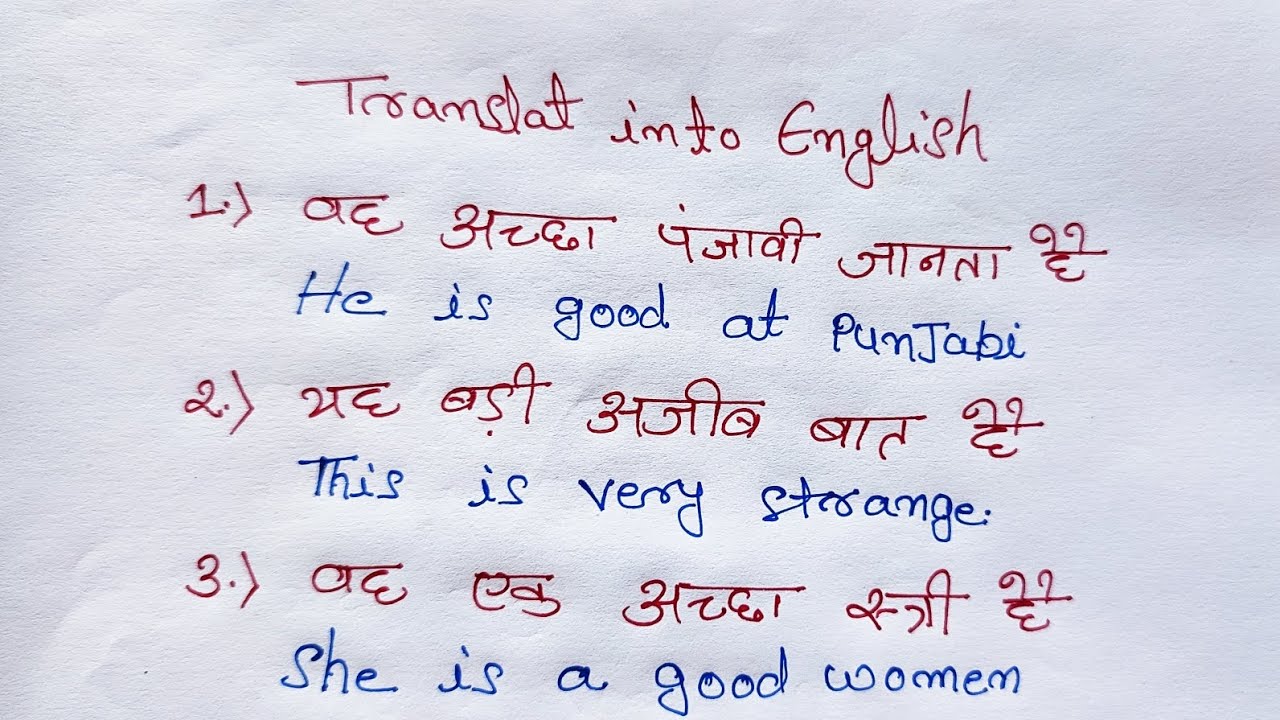 Translat into English
1.) वह अच्छा पंजावी जानता है
He is good at PunJabi
२.) यह बड़ी अजीब बात है
This is very strange.
३.) वह एक अच्छा स्त्री है
She is a good women